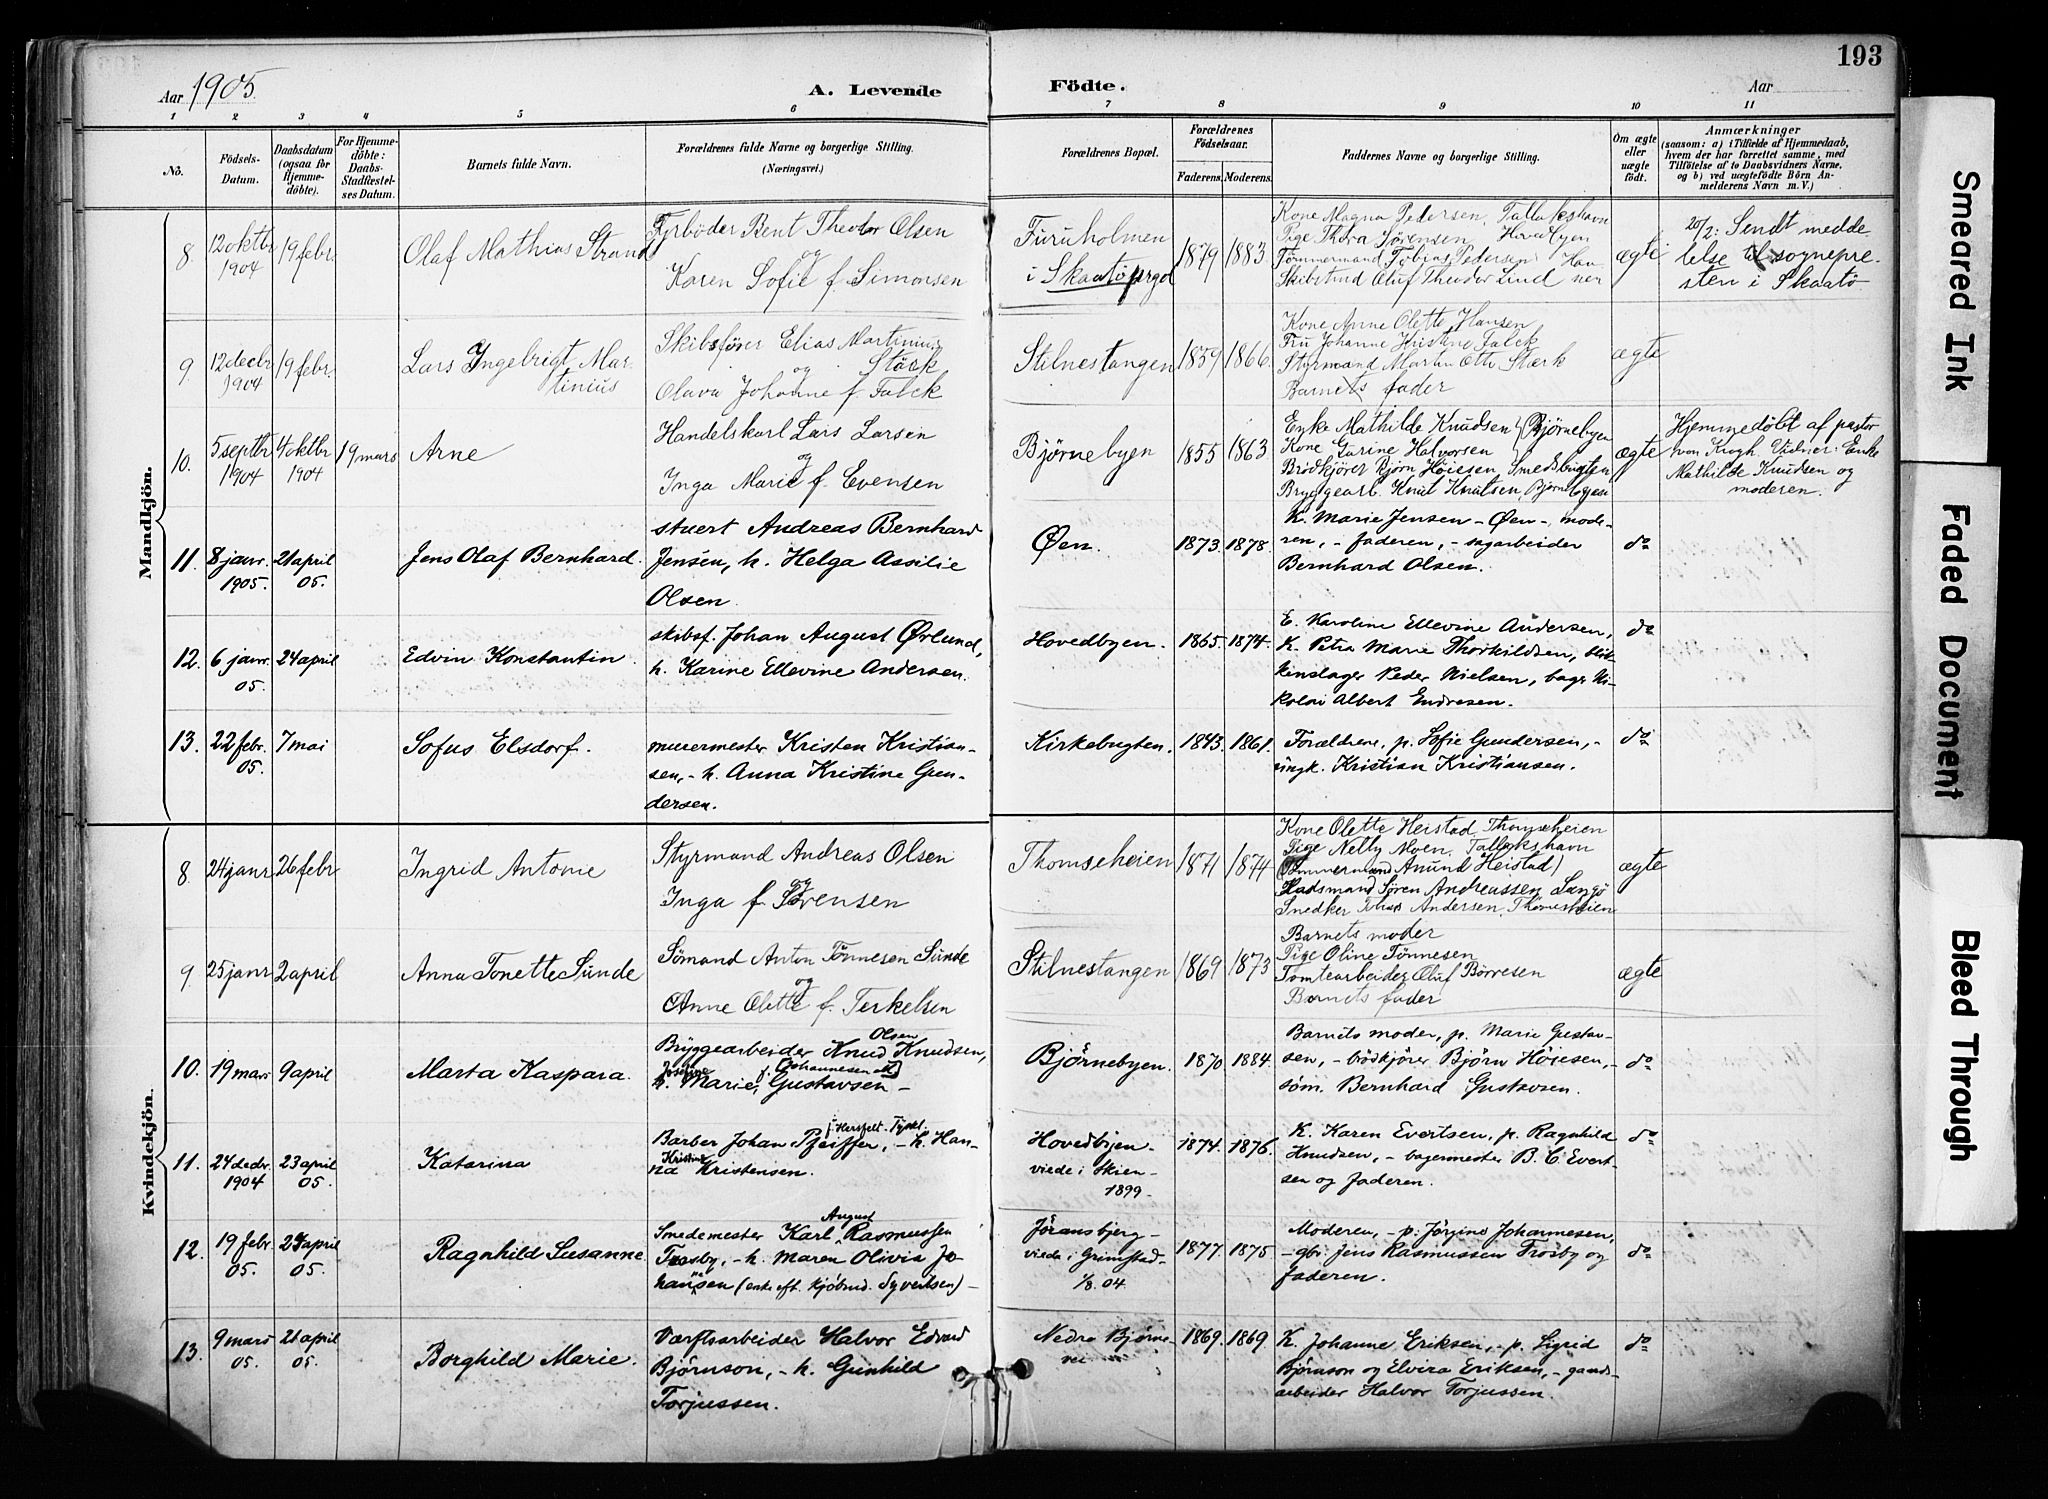 193
Aar 1905. A. Levende Födte. Aar
1 2 3 4 5 6 7 8 9 10 11
No.
Födsels-Datum.
Daabsdatum (ogsaa for Hjemmedöbte).
For Hjemmedöbte: Daabs-Stadfæstelses Datum.
Barnets fulde Navn.
Forældrenes fulde Navne og borgerlige Stilling. (Næringsvei.)
Forældrenes Bopæl.
Forældrenes Födselsaar.
Faderens. Moderens.
Faddernes Navne og borgerlige Stilling.
Om ægte eller uægte födt.
Anmærkninger
(saasom: a) i Tilfælde af Hjemmedaab, hvem der har forrettet samme, med Tilföielse af to Daabsvidners Navne, og b) ved uægtefödte Börn Anmelderens Navn m. V.)
Mandkjön.
8. 12 oktbr 1904 19 febr. Olaf Mathias Strand
Fyrböder Bent Theodor Olsen
og
Karen Sofie f. Simonsen
Furuholmen
i Skaatö prgd
1879 1883
Kone Magna Pedersen, Tallakshavn
Pige Thora Sørensen Hovedbyen
Tömmermand Tobias Pedersen
Skibstmd Oluf Theodor Lind
ægte
20/2: Sendt medde-
lelse til sognepre-
sten i Skaatö
9. 12 decbr 1904 19 febr. Lars Ingebrigt Mar-
tinius
Skibsfører Elias Martinius
Stöck
og
Olava Johanne f. Falck
Stilnestangen 1859 1866.
Kone Anne Olette Hansen
Fru Johanne Kristine Falck
Styrmand Martin Otto Stærk
Barnets fader
ægte
10. 5 septbr 1904 4 oktbr 1904 19 mars Arne
Handelskarl Lars Larsen
og
Inga Marie f. Evensen
Bjørnebyen 1855 1863
Enke Mathilde Knudsen Bjørnebyen
Kone Gurine Halvorsen
Brödkjörer Bjørn Høiesen, Smedsbugten
Bryggearb. Knut Knutsen, Bjørnebyen
ægte
Hjemmedöbt af pastor
von Krogh Vidner: Enke
Mathilde Knudsen og
moderen.
11. 8 janr. 1905. 21 april 05. Jens Olaf Bernhard.
stuert Andreas Bernhard
Jensen, h. Helga Assilie
Olsen.
Øen. 1873. 1878.
K. Marie Jensen - Øen -, mode-
ren, - faderen, - sagarbeider
Bernhard Olsen.
do
12. 6 janr. 05. 24 april Edvin Konstantin.
skibsf. Johan August Ørlund,
h. Karine Ellevine Andersen.
Hovedbyen. 1865. 1874.
E. Karoline Ellevine Andersen,
K. Petra Marie Thorkildsen, blik-
kenslager Peder Nielsen, bager Ni-
kolai Albert Endresen.
do
13. 22 febr. 05. 7 mai Sofus Elsdorf.
murermester Kristen Kristian-
sen, - h. Anna Kristine Gun-
dersen.
Kirkebugten. 1843. 1861.
Forældrene, p. Sofie Gundersen, -
ungk. Kristian Kristiansen.
do
Kvindekjön.
8. 24 janr 26 febr Ingrid Antonie
Styrmand Andreas Olsen
og
Inga f. Sörensen
Thomseheien 1871 1874
Kone Olette Heistad, Thomseheien
Pige Nelly Moen, Tallakshavn
(Tömmermand Anund Heistad)
Baadsmand Søren Andreassen Langö
Snedker Andersen, Thomseheien
ægte
9. 25 janr 2 april Anna Tonette Sunde
Sömand Anton Tönnesen Sunde
og
Anne Olette f. Terkelsen
Stilnestangen 1869 1873
Barnets moder
Pige Oline Tönnesen
Tomtearbeider Oluf Börresen
Barnets fader
ægte
10. 19 mars 9 april Marta Kaspara.
Olsen
Bryggearbeider Knud Knudsen,
Josefine f. (Johannesen
h. Marie, Gustavsen -
Bjørnebyen. 1870 1884.
Barnets moder, p. Marie Gustav-
sen, - brödkjörer Bjørn Høiesen, -
søm. Bernhard Gustavsen.
do
11. 24 decbr. 1904 23 april 05. Katarina
f. Hersfelt. Tyskl.
Barber Johan Pfeiffer, - h. Han-
Kristine
na Kristensen.
Hovedbyen -
viede i Skien -
1899 -
1874. 1876.
K. Karen Evertsen, p. Ragnhild
Knudsen, - bagermester B. C. Evert-
sen og faderen.
do
12. 19 febr. 05. 24 april 05. Ragnhild Susanne.
August
Smedemester Karl Rasmussen
Trosby, - h. Maren Olivia Jo-
hansen (enke eft. kjöbmd. Syvertsen) -
Jøransbjerg -
viede i Grimstad -
1/8. 04.
1877. 1875.
Moderen, - p. Jörgine Johannesen,
- gbr. Jens Rasmussen Trosby og
faderen.
do
13. 9 mars 05. 21 april 05. Borghild Marie.
Værftsarbeider Halvor Edvard
Björnson, - h. Gunhild
Torjussen.
Nedre Bjørne-
vei
1869. 1869.
K. Johanne Eriksen, - p. Sigrid
Björnson og Elvira Eriksen, - gaards-
arbeider Halvor Torjussen.
do
Smeared Ink
Faded Document
Bleed Through